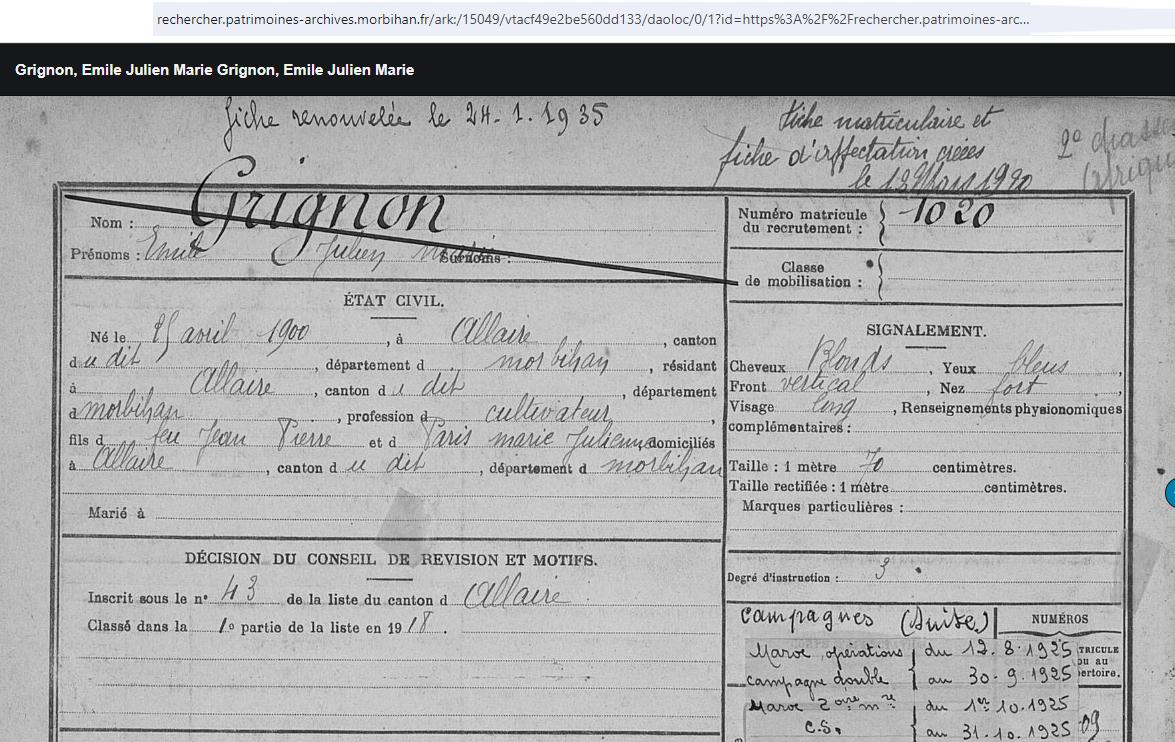 rechercher.patrimoines-archives.morbihan.fr/ark:/15049/vtacf49e2be560dd133/daoloc/0/1?id=https%3A%2F%2Frechercher.patrimoines-arc...
Grignon, Emile Julien Marie Grignon, Emile Julien Marie
fiche renouvelée le 24.1.1935
Fiche matriculaire et
fiche d'affectation créées
le Mars
2e
Nom : Grignon
Prénoms : Emile Julien Surnoms :
ÉTAT CIVIL.
Né le avril 1900, à Allaire, canton
du dit, département d morbihan, résidant
à Allaire, canton du dit, département
d morbihan, profession d cultivateur,
fils d feu Jean Pierre et d Paris marie Julienne domiciliés
à Allaire, canton d u dit, département d morbihan
Marié à
DÉCISION DU CONSEIL DE REVISION ET MOTIFS.
Inscrit sous le n° 43 de la liste du canton d Allaire
Classé dans la 1e partie de la liste en 1918.
Numéro matricule
du recrutement : 1020
Classe
de mobilisation :
SIGNALEMENT.
Cheveux Blonds, Yeux bleus,
Front vertical, Nez fort,
Visage long, Renseignements physionomiques
complémentaires :
Taille : 1 mètre 70 centimètres.
Taille rectifiée : 1 mètre centimètres.
Marques particulières :
Degré d'instruction : 3
Campagnes (Suite) NUMÉROS
Maroc opérations du 12.8.1925 TRICULE
ou au
campagne double au 30.9.1925 pertoire.
Maroc 2ome du 1er 10.1925
C.S. au 31.10.1925 09